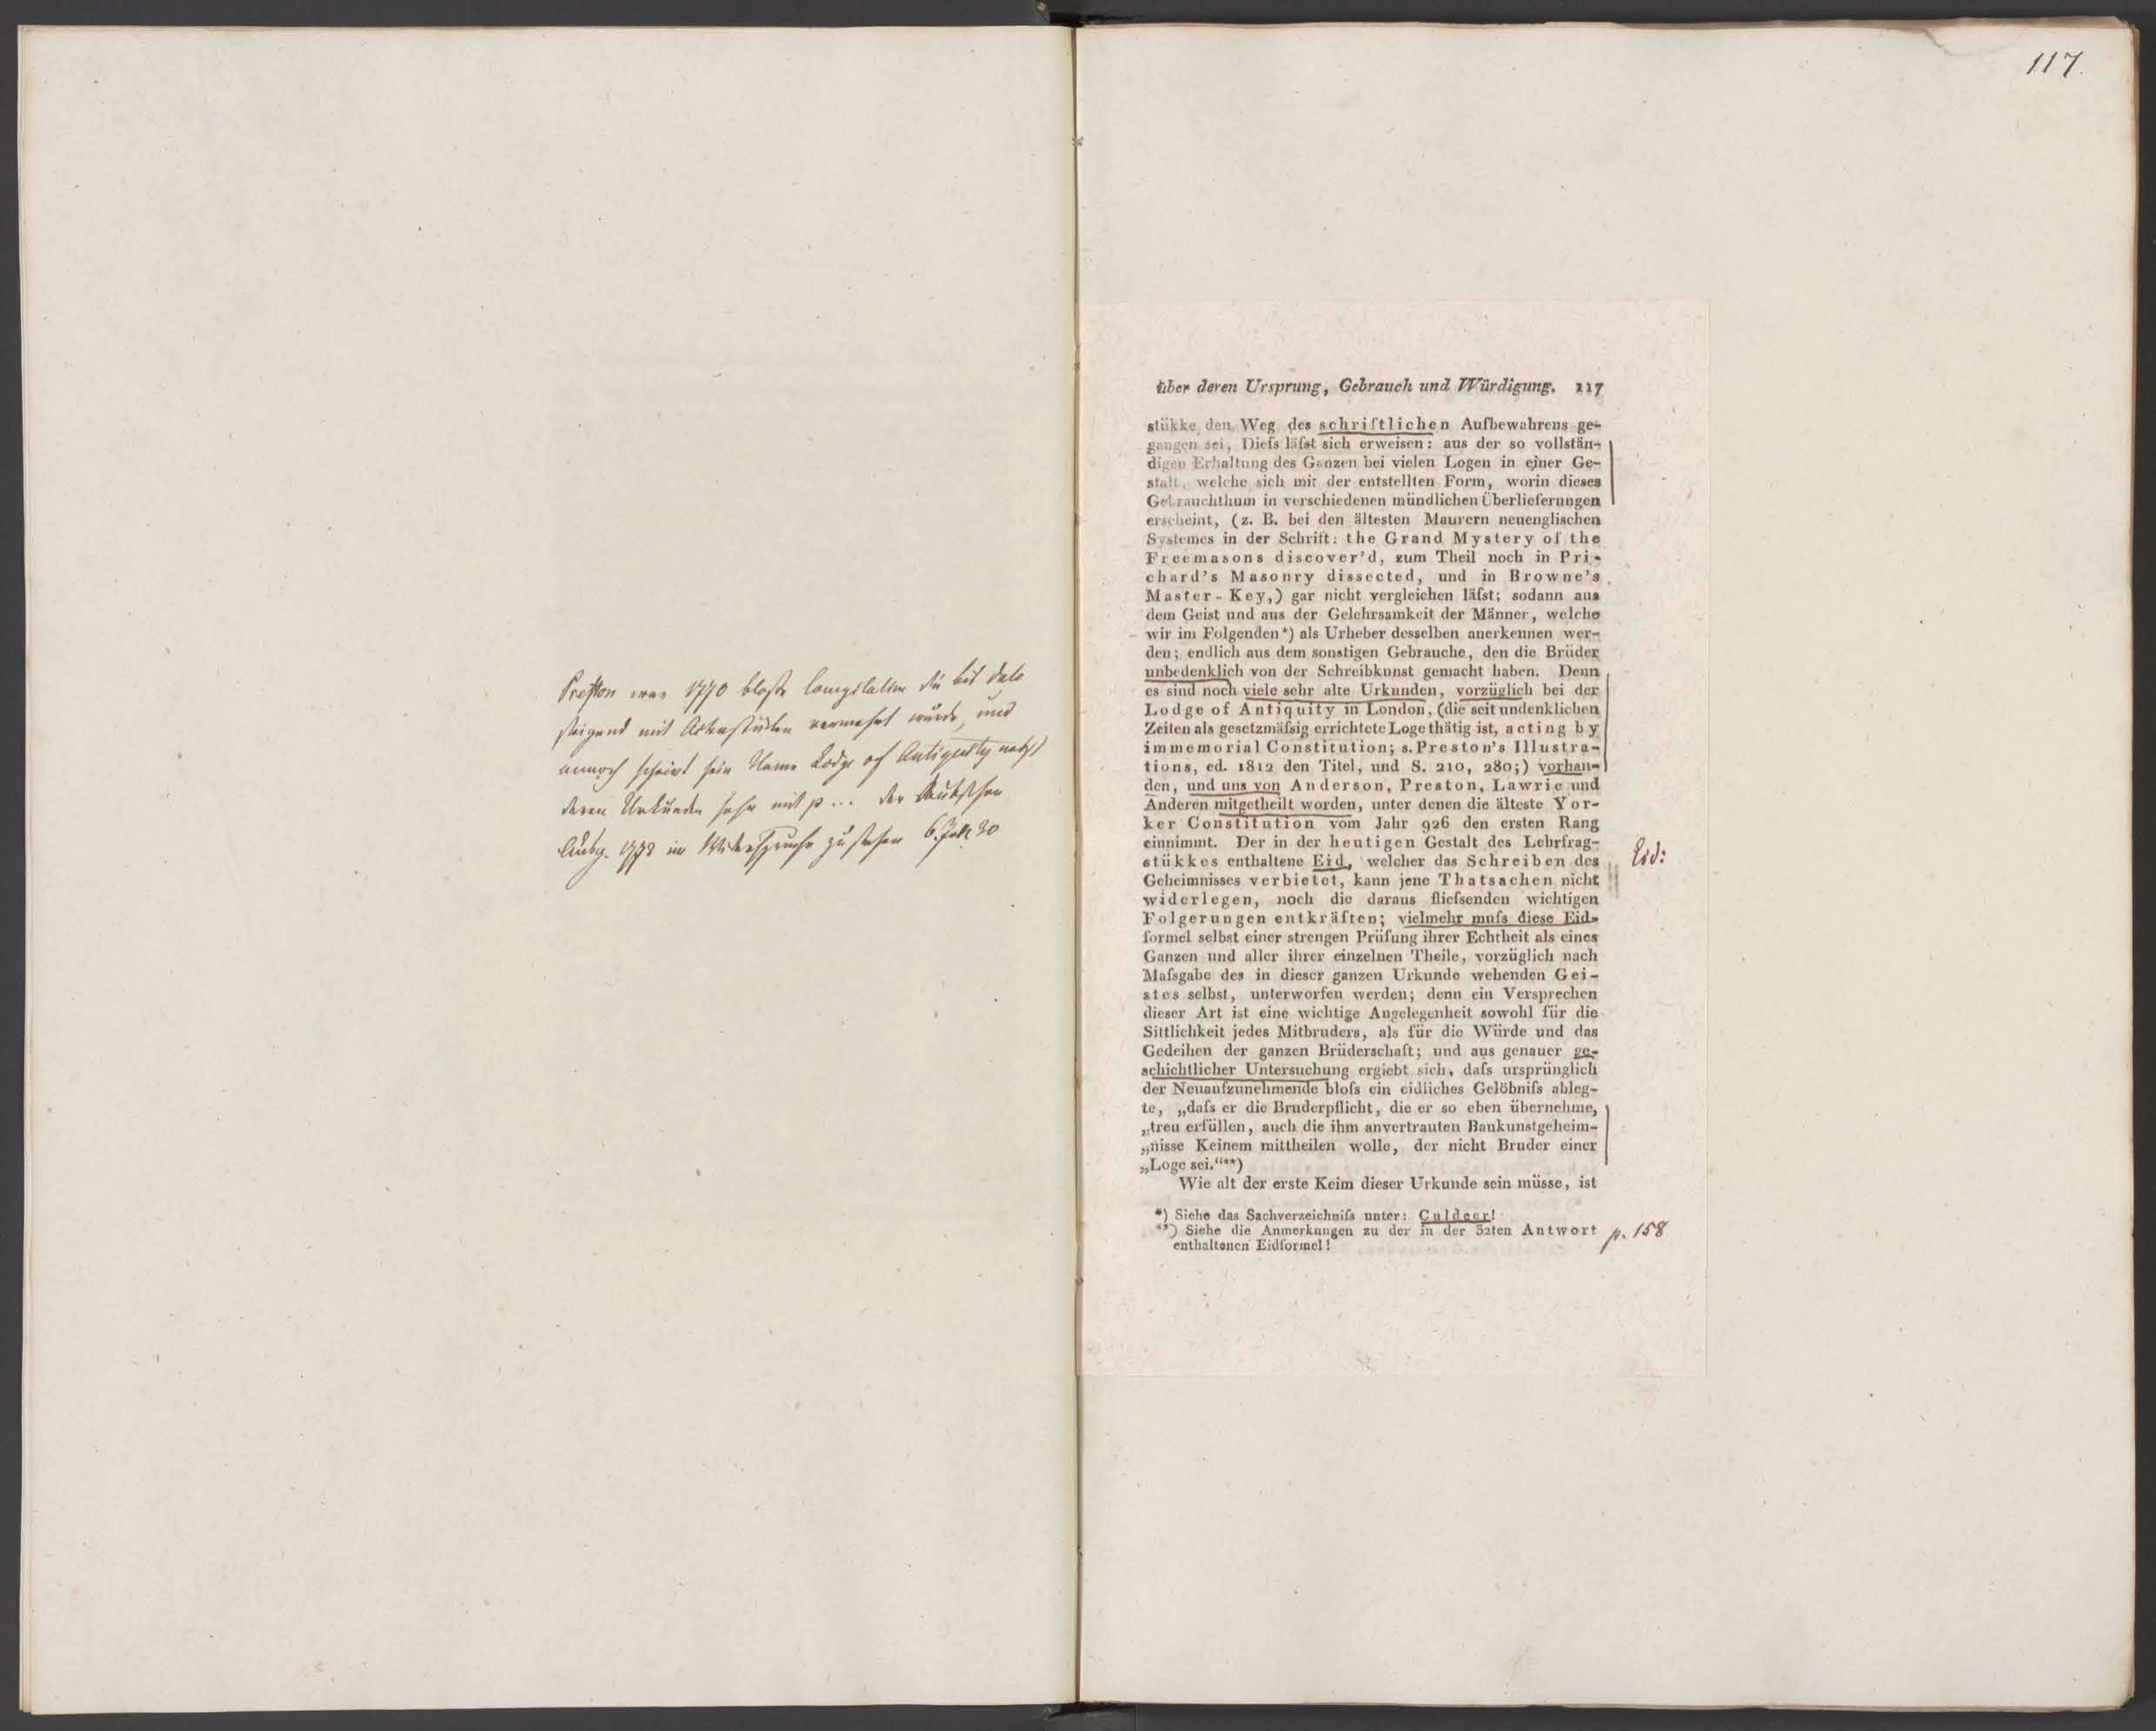 Preston war 1770 bloße Compilation die bis dato
steigend mit Actenstücken vermehrt wurde, und
annoch scheint sein Name Lodge of Antiquity nebst
deren Urkunden sehr mit p... der
Ausg. in Widerspruche zu stehen 6. Juli 30
117.
über deren Ursprung, Gebrauch und Würdigung. 117
stükke den Weg des schriftlichen Aufbewahrens ge-
gangen sei, Diefs läfst sich erweisen: aus der so vollstän-
digen Erhaltung des Ganzen bei vielen Logen in einer Ge-
stalt, welche sich mit der entstellten Form, worin dieses
Gebrauchthum in verschiedenen mündlichen Überlieferungen
erscheint, (z. B. bei den ältesten Maurern neuenglischen
Systemes in der Schrift: the Grand Mystery of the
Freemasons discover'd, zum Theil noch in Pri-
chard's Masonry dissected, und in Browne's
Master-Key,) gar nicht vergleichen läfst; sodann aus
dem Geist und aus der Gelehrsamkeit der Männer, welche
wir im Folgenden*) als Urheber desselben anerkennen wer-
den; endlich aus dem sonstigen Gebrauche, den die Brüder
unbedenklich von der Schreibkunst gemacht haben. Denn
es sind noch viele sehr alte Urkunden, vorzüglich bei der
Lodge of Antiquity in London, (die seit undenklichen
Zeiten als gesetzmäfsig errichtete Loge thätig ist, acting by
immemorial Constitution; s. Preston's Illustra-
tions, ed. 1812 den Titel, und S. 210, 280;) vorhan-
den, und uns von Anderson, Preston, Lawrie und
Anderen mitgetheilt worden, unter denen die älteste Yor-
ker Constitution vom Jahr 926 den ersten Rang
einnimmt. Der in der heutigen Gestalt des Lehrfrag-
stükkes enthaltene Eid, welcher das Schreiben des
Eid:
Geheimnisses verbietet, kann jene Thatsachen nicht
widerlegen, noch die daraus fliefsenden wichtigen
Folgerungen entkräften; vielmehr mufs diese Eid-
formel selbst einer strengen Prüfung ihrer Echtheit als eines
Ganzen und aller ihrer einzelnen Theile, vorzüglich nach
Mafsgabe des in dieser ganzen Urkunde wehenden Gei-
stes selbst, unterworfen werden; denn ein Versprechen
dieser Art ist eine wichtige Angelegenheit sowohl für die
Sittlichkeit jedes Mitbruders, als für die Würde und das
Gedeihen der ganzen Brüderschaft; und aus genauer ge-
schichtlicher Untersuchung ergiebt sich, dafs ursprünglich
der Neuaufzunehmende blofs ein eidliches Gelöbnifs ableg-
te, „dafs er die Bruderpflicht, die er so eben übernehme,
„treu erfüllen, auch die ihm anvertrauten Baukunstgeheim-
„nisse Keinem mittheilen wolle, der nicht Bruder einer
„Loge sei.“**)
Wie alt der erste Keim dieser Urkunde sein müsse, ist
*) Siehe das Sachverzeichnifs unter: Culdeer!
**) Siehe die Anmerkungen zu der in der 32ten Antwort
enthaltenen Eidformel!
p. 158